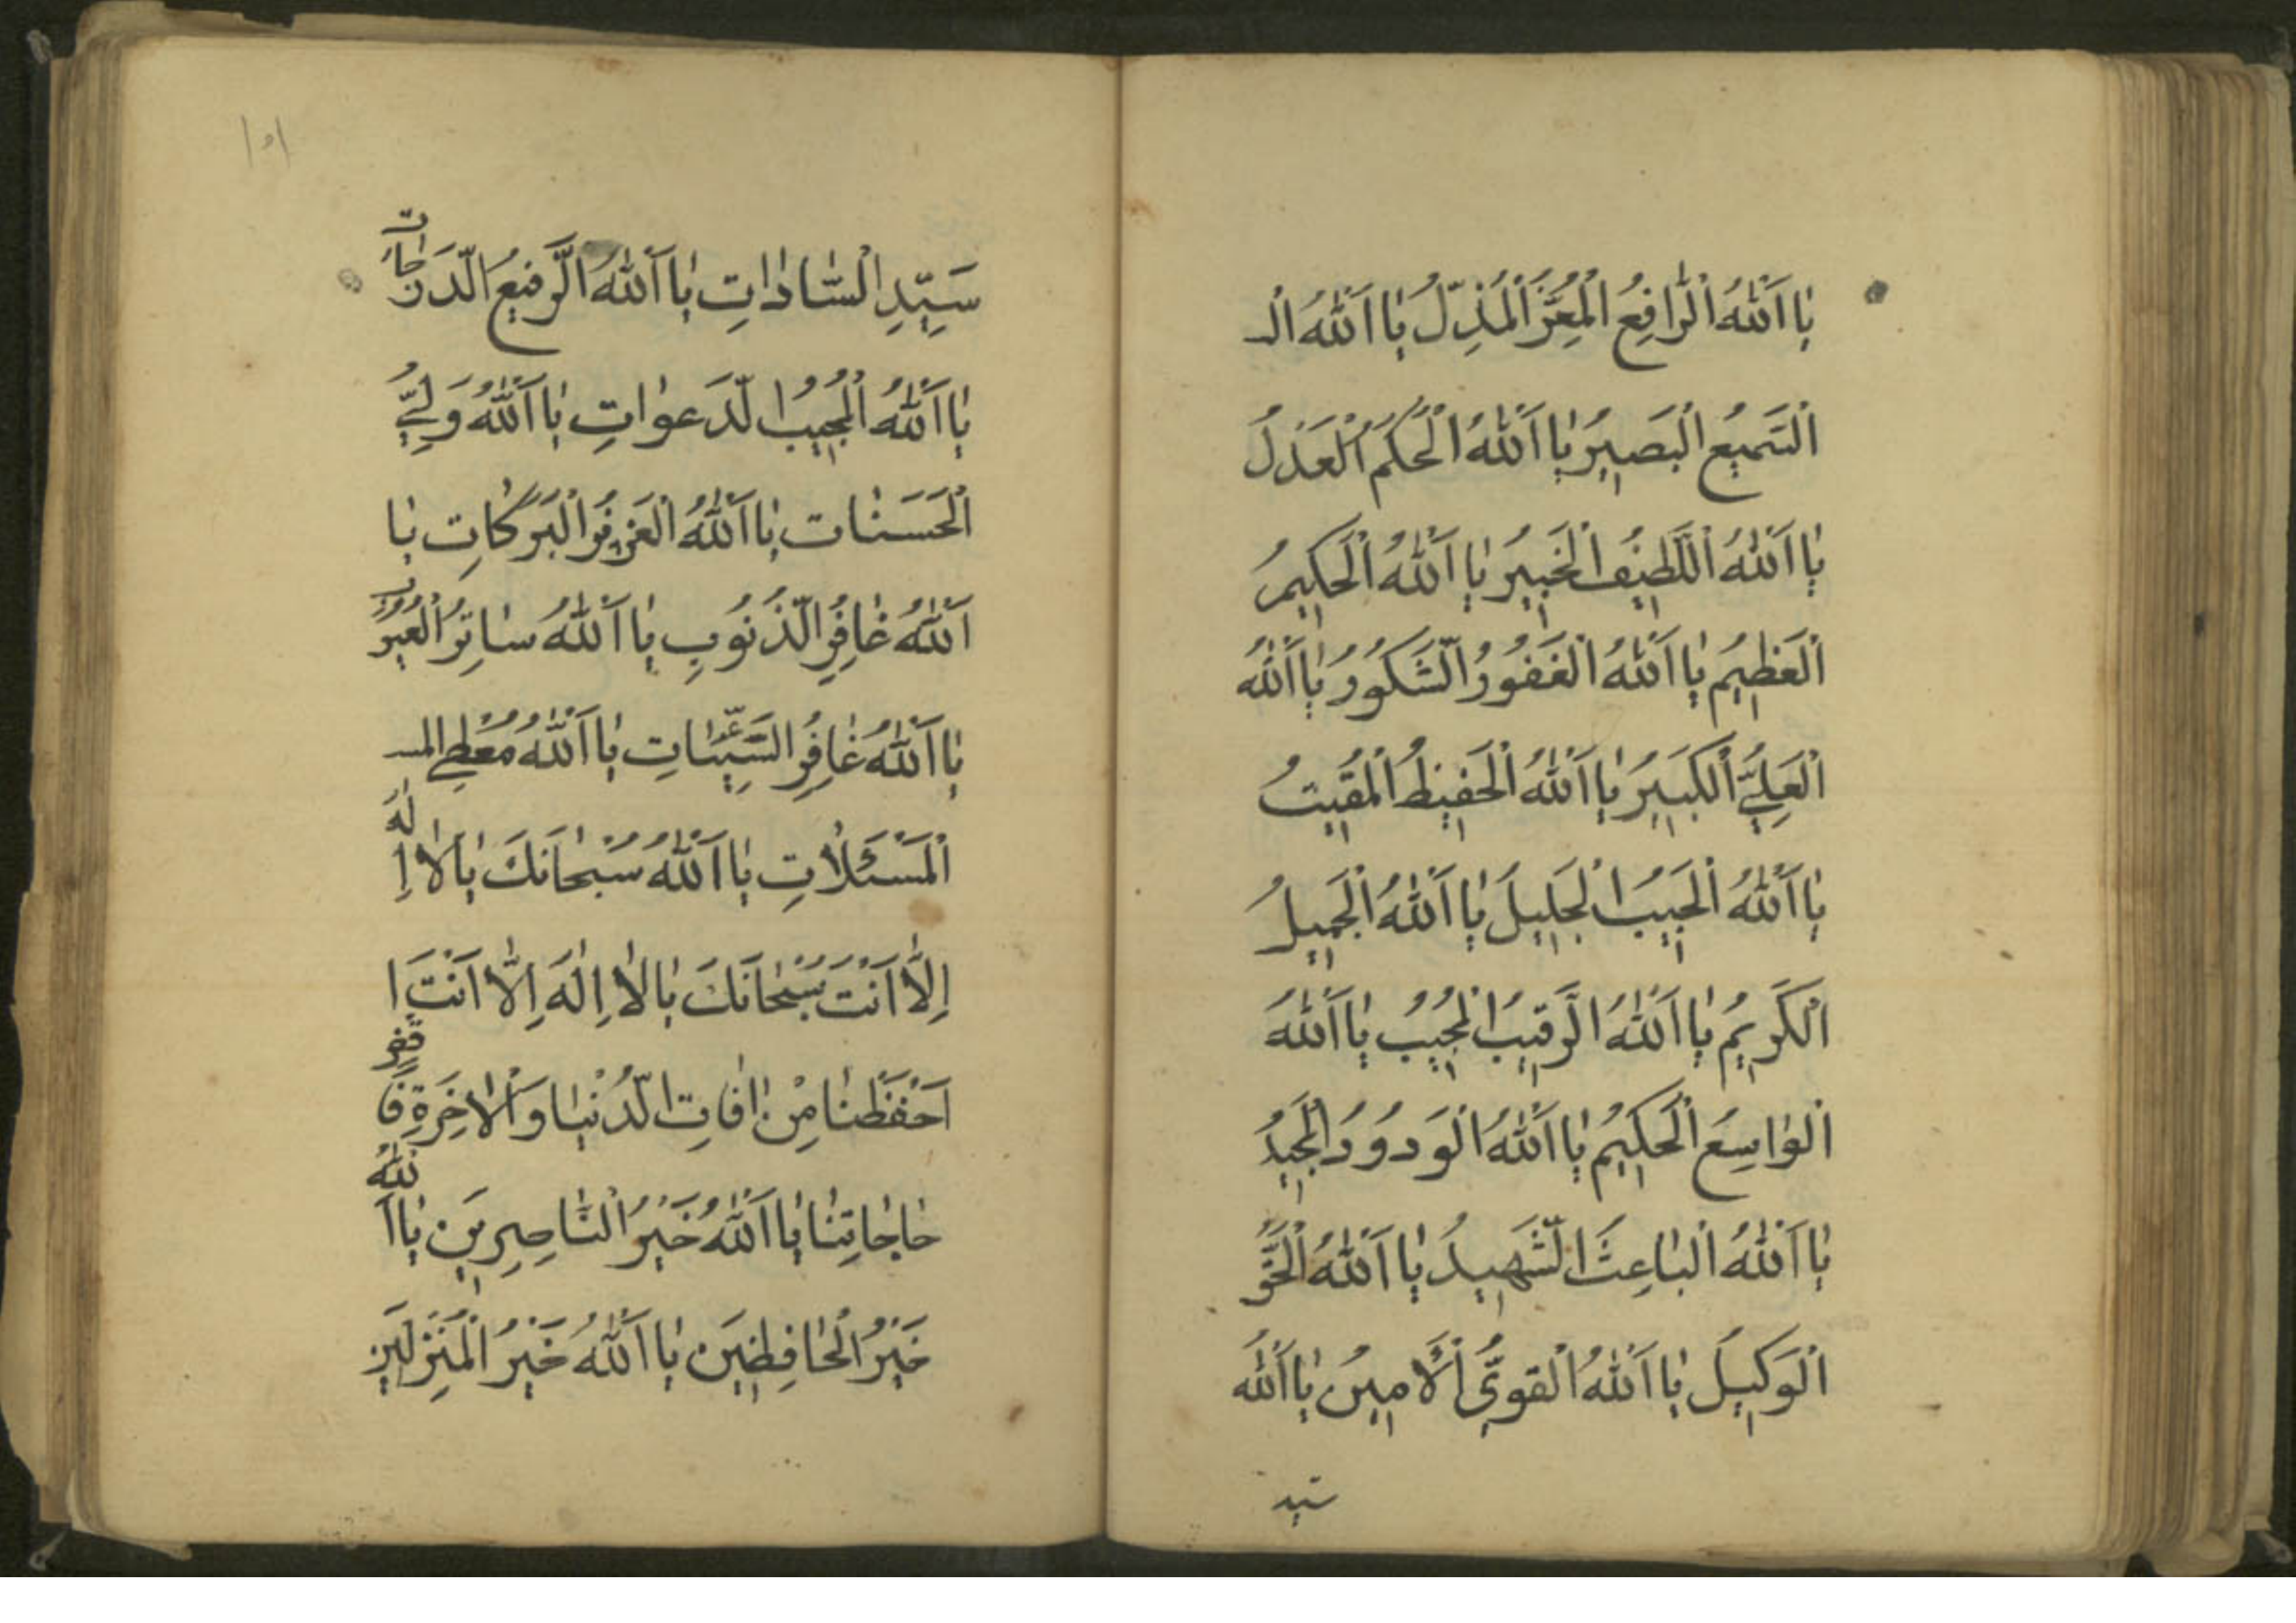 يٰا اَللّٰهُ الْرّٰافِعُ الْمُعِزُّ الْمُذِلُّ يٰا اَللّٰهُ الـ
الْسَّمِيعُ الْبَصِيرُ يٰا اَللّٰهُ الْحَكَمُ الْعَدْلُ
يٰا اَللّٰهُ الْلَّطِيفُ الْخَبِيرُ يٰا اَللّٰهُ الْحَكِيمُ
الْعَظِيمُ يٰا اَللّٰهُ الْغَفُورُ الْشَّكُورُ يٰا اَللّٰهُ
الْعَلِيُّ الْكَبِيرُ يٰا اَللّٰهُ الْحَفِيظُ الْمُقِيتُ
يٰا اَللّٰهُ الْحَبِيبُ الْجَلِيلُ يٰا اَللّٰهُ الْجَمِيلُ
الْكَرِيمُ يٰا اَللّٰهُ الْرَّقِيبُ الْمُجِيبُ يٰا اَللّٰهُ
الْوٰاسِعُ الْحَكِيمُ يٰا اَللّٰهُ الْوَدوُدُ الْمَجِيدُ
يٰا اَللّٰهُ الْبٰاعِثُ الْشَّهِيدُ يٰا اَللّٰهُ الْحَقُّ
الْوَكِيلُ يٰا اَللّٰهُ الْقَوِيُّ الْاَمِينُ يٰا اَللّٰهُ
سيد
١٥١
سَيِّدِ الْسّٰادٰاتِ يٰا اَللّٰهُ الْرَّفِيعُ الْدَّرَجٰاتِ
يٰا اَللّٰهُ الْمُجِيبُ الْدَّعَوٰاتِ يٰا اَللّٰهُ وَلِيُّ
الْحَسَنٰاتِ يٰا اَللّٰهُ الْبَرَكٰاتِ يٰا
اَللّٰهُ غٰافِرُ الْذُّنُوبِ يٰا اَللّٰهُ سٰاتِرُ الْعُيُوبِ
يٰا اَللّٰهُ غٰافِرُ الْسَّيِّئٰاتِ يٰا اَللّٰهُ مُعْطِي المسـ
الْمَسْئَلاٰتِ يٰا اَللّٰهُ سُبْحٰانَكَ يٰا لاٰ اِلٰهَ
اِلّٰا اَنْتَ سُبْحٰانَكَ يٰا لاٰ اِلٰهَ اِلّٰا اَنْتَ ا
اَحْفَظْنٰا مِنْ اٰفٰاتِ الْدُّنْيٰا وَالْاٰخِرَةِ فَاقْضِ
حٰاجٰاتِنٰا يٰا اَللّٰهُ خَيْرُ الْنّٰاصِرِينَ يٰا اَللّٰهُ
خَيْرُ الْحٰافِظِينَ يٰا اَللّٰهُ خَيْرُ الْمُنْزِلِينَ